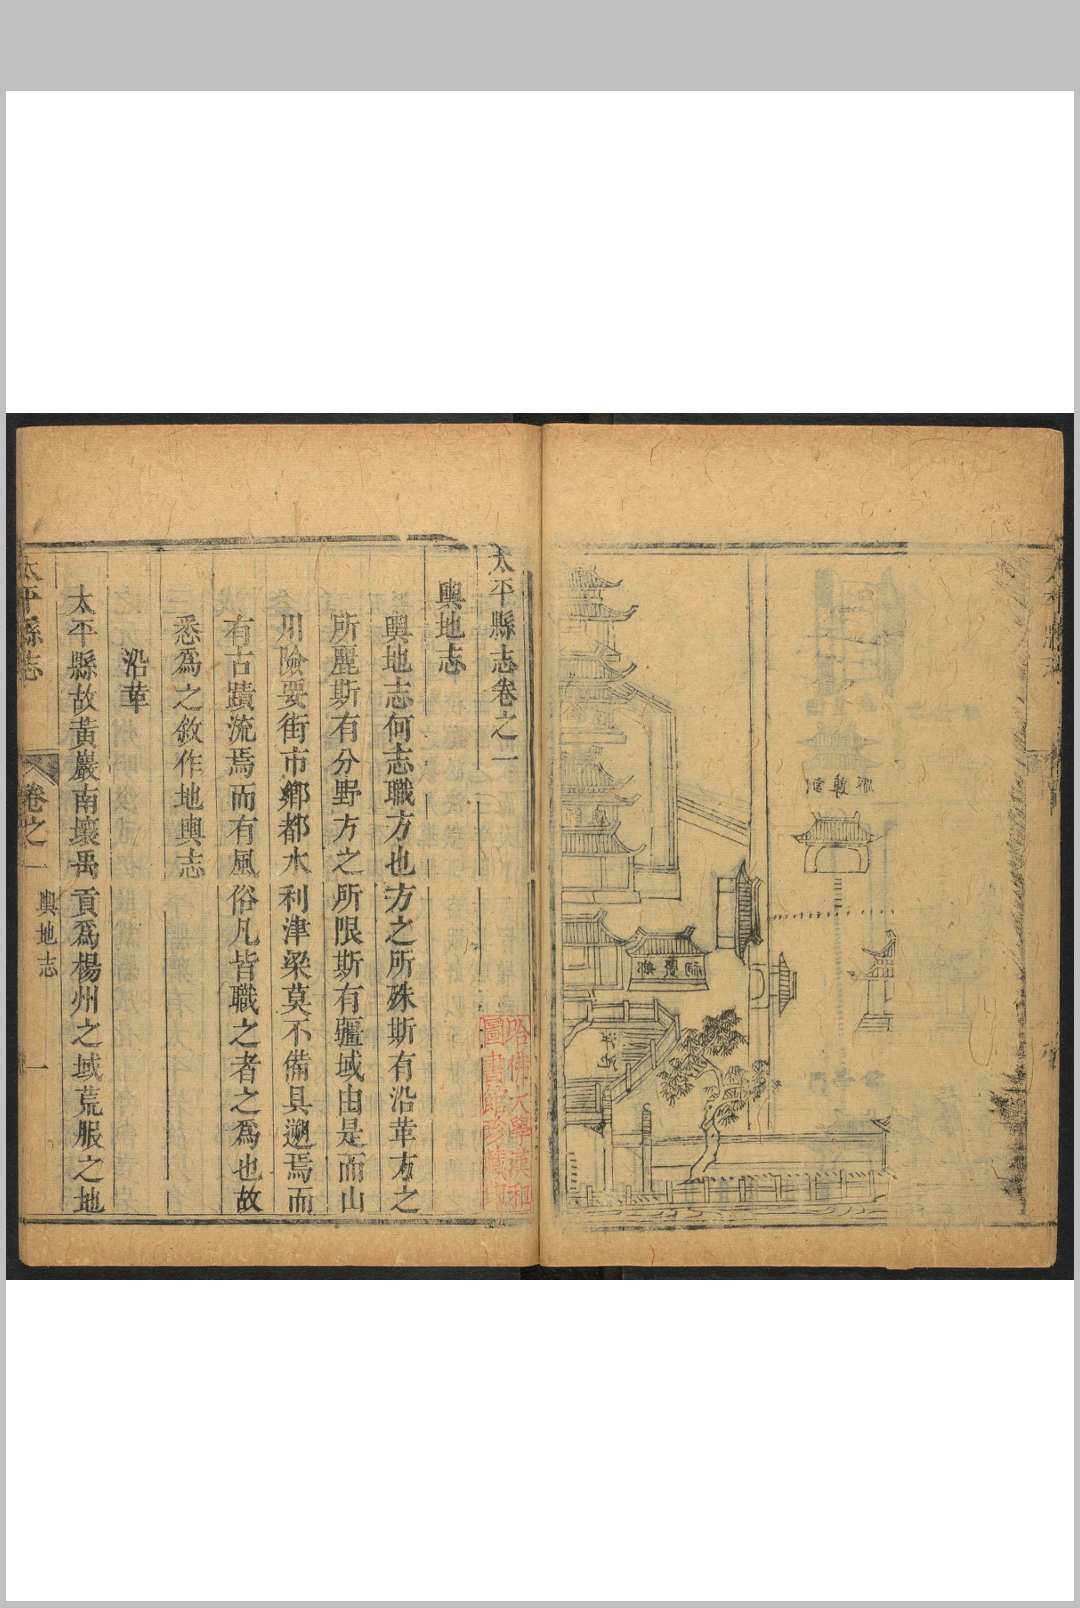 鄉賢祠
太平縣志卷之一
輿地志
輿地志何志職方也方之所殊斯有沿革方之
所麗斯有分野方之所限斯有疆域由是而山
川險要街市鄉都水利津梁莫不備具遡焉而
有古蹟流焉而有風俗凡皆職之者之爲也故
悉爲之敘作地輿志
沿革
太平縣故黃巖南壤禹貢爲楊州之域荒服之地
太平縣志
卷之一
輿地志
一
哈佛大學漢和
圖書館珍藏印